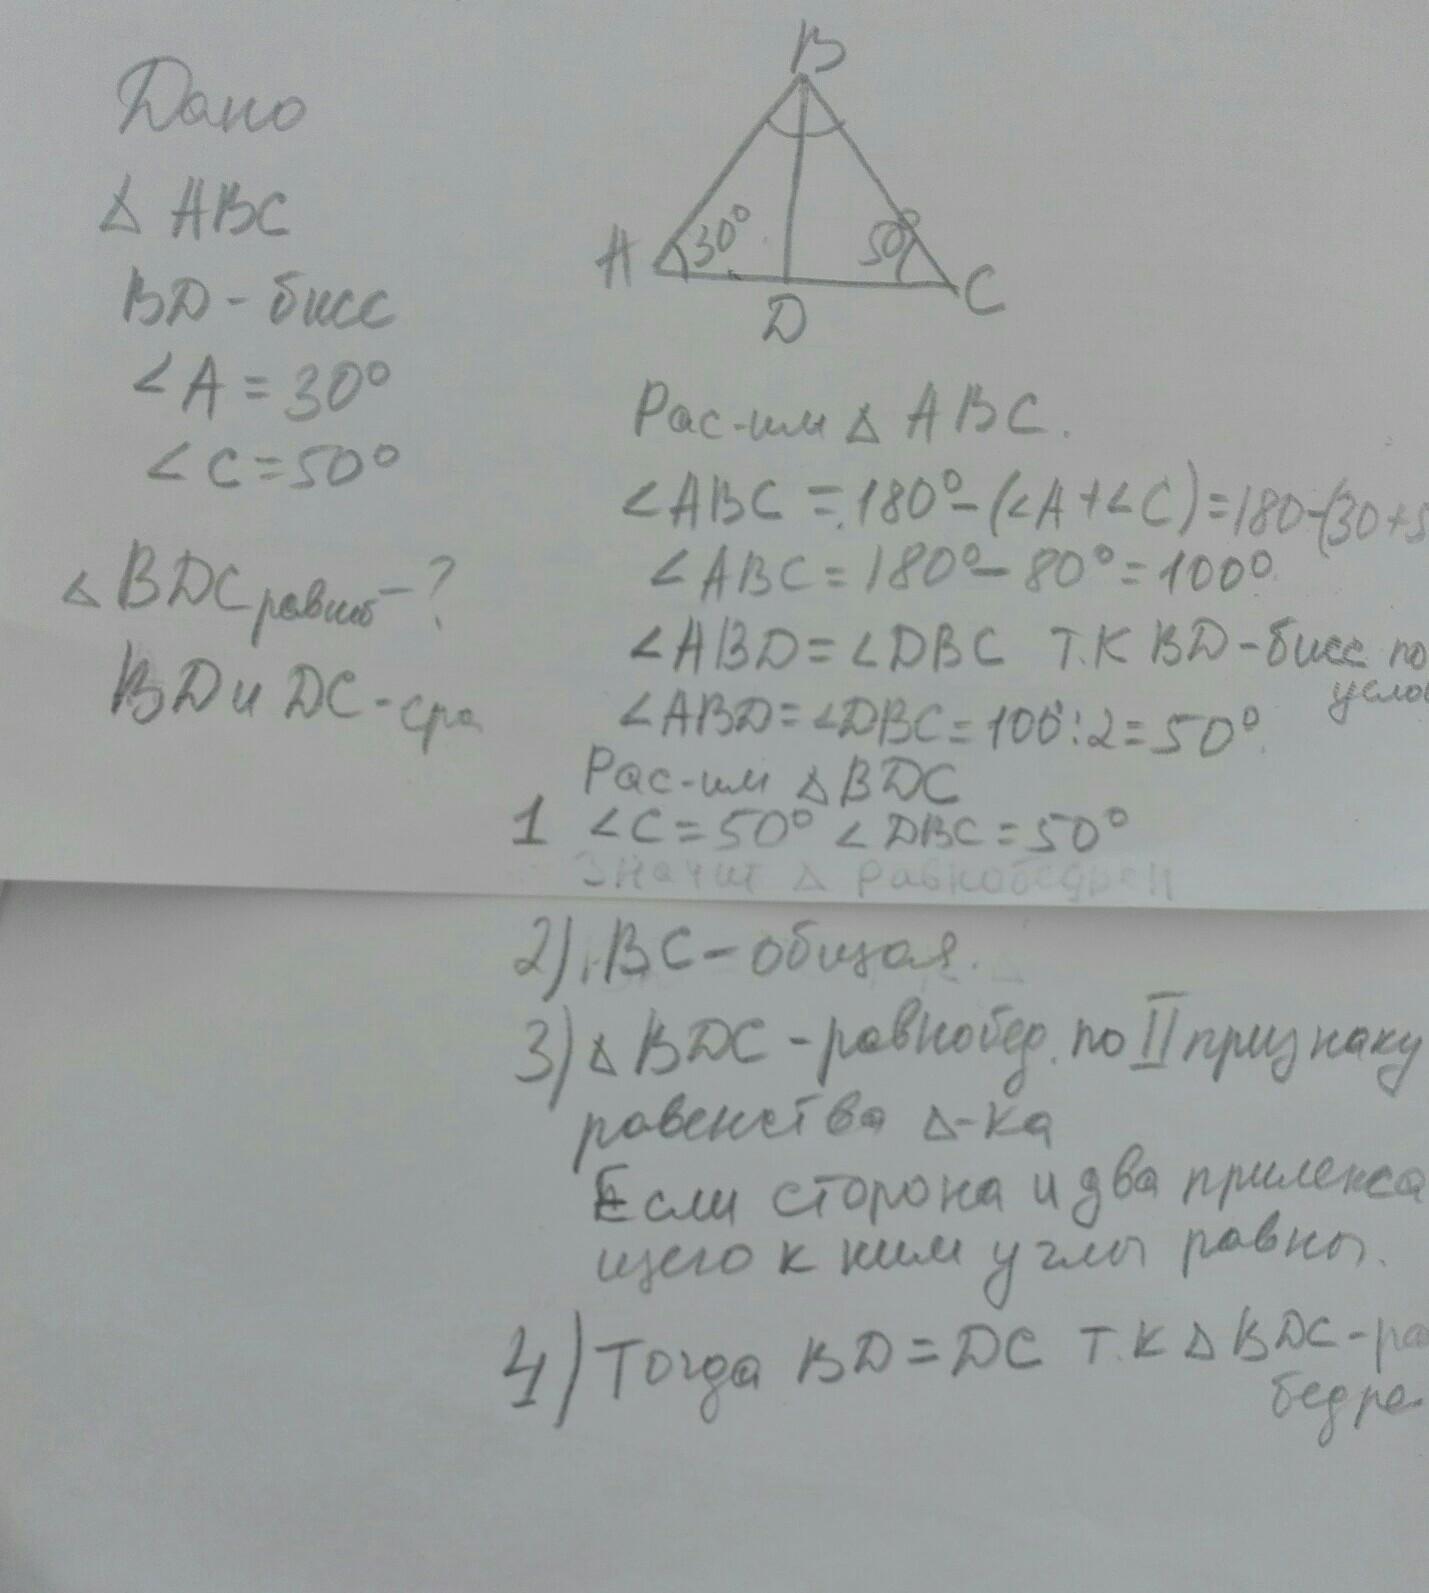 Дано
Δ ABC
BD - бисс
∠A = 30°
∠C = 50°
Δ BDC равноб - ?
BD и DC - сра
B
A
30°
50°
D
C
Рас-им Δ ABC.
∠ABC = 180° - (∠A + ∠C) = 180 - (30 + 5
∠ABC = 180° - 80° = 100°
∠ABD = ∠DBC т.к BD - бисс по
усло
∠ABD = ∠DBC = 100 : 2 = 50°
Рас-им Δ BDC
1 ∠C = 50° ∠DBC = 50°
Значит Δ равнобедрен
2) BC - общая.
3) Δ BDC - равнобед. по II признаку
равенства Δ-ка
Если сторона и два прилежа
щего к ним углы равны.
4) Тогда BD = DC т.к Δ BDC - ра
бедре